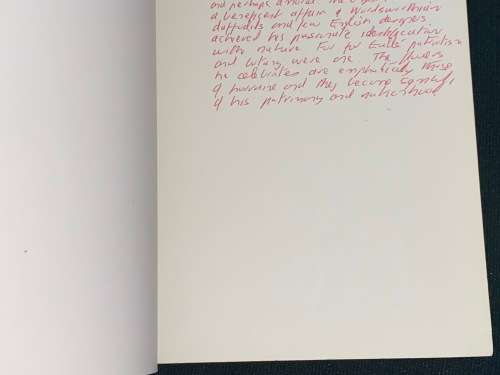 and perhaps
a beneficent affair of Wordsworthian
daffodils and few English designers
achieved his passionate identification
with nature. For for patriotism
and botany were one. The flowers
he celebrates are emphatically those
of Lorraine and they become symbols
of his patrimony and nationhood